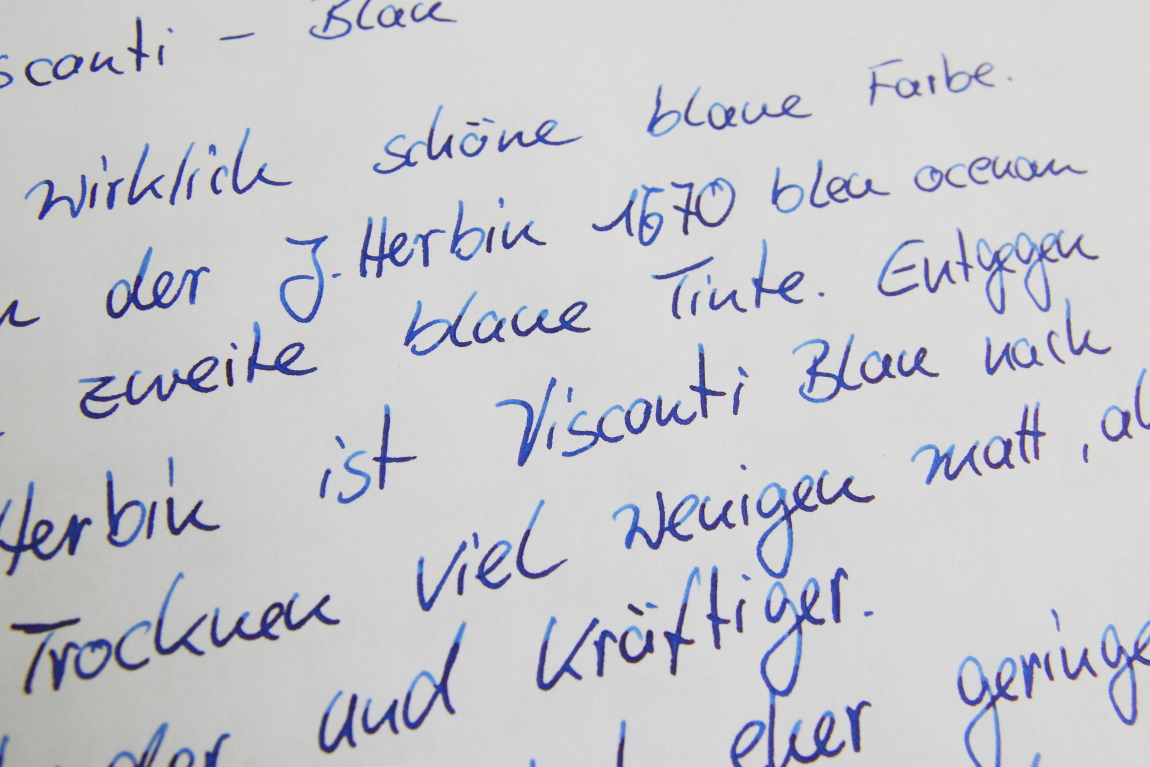 sconti - Blau
wirklich schöne blaue Farbe.
n der J. Herbin 1670 bleu ocenan
zweite blaue Tinte. Entgegen
Herbin ist Visconti Blau nach
Trocknen viel wenigen matt, al
und kräftiger.
eher geringe